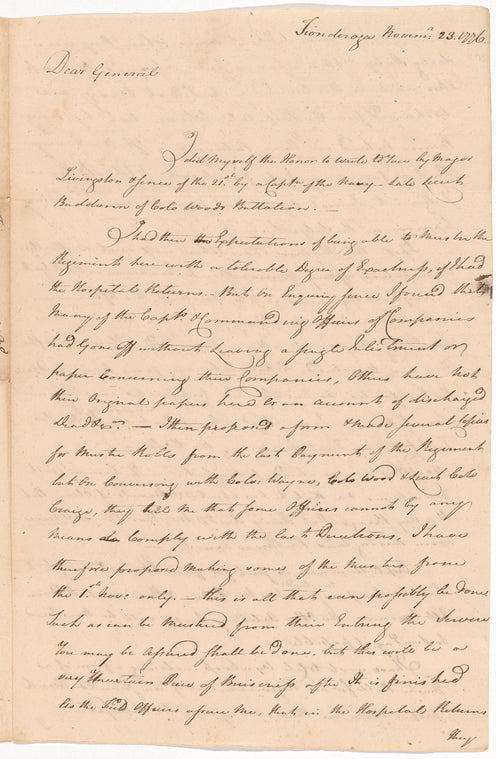 Tionderoga Novemr. 23. 1776.
Dear General
I did myself the Honor to write to You by Major
Livingston & sence of the 21.st by a Captn of the Navy - late Lieut
of Colo Woods Battalion. —
I had then Expectations of being able to Muster the
Regiments here with a tolerable Degree of Exactness, if I had
the Hospital Returns. - But on Enquiry sence I found that
Many of the Capts & Commanding Officers of Companies
had Gone Off without Leaving a single Inlistment or
paper Concerning their Companies, Others have not
their Orignal papers here or an account of discharged
Dead &c? — I then proposed a form & made several Copies
for Muster Rolls from the last Payments of the Regiment
but On Conversing with Colo: Wayne, Colo Wood & Lieut Colo
Craige, they tell Me that some Officers cannot by any
means Comply with the last Directions, I have
therefore propos'd making some of the Musters from
the 1.st Nov: only. — this is all that can possibly be done
Such as can be Musterd from their Entring the Service
You may be assured shall be done, but this will be a
very Uncertain Piece of Buiseness after It is finished
As the Field Officers assure Me, that in the Hospital Returns
they